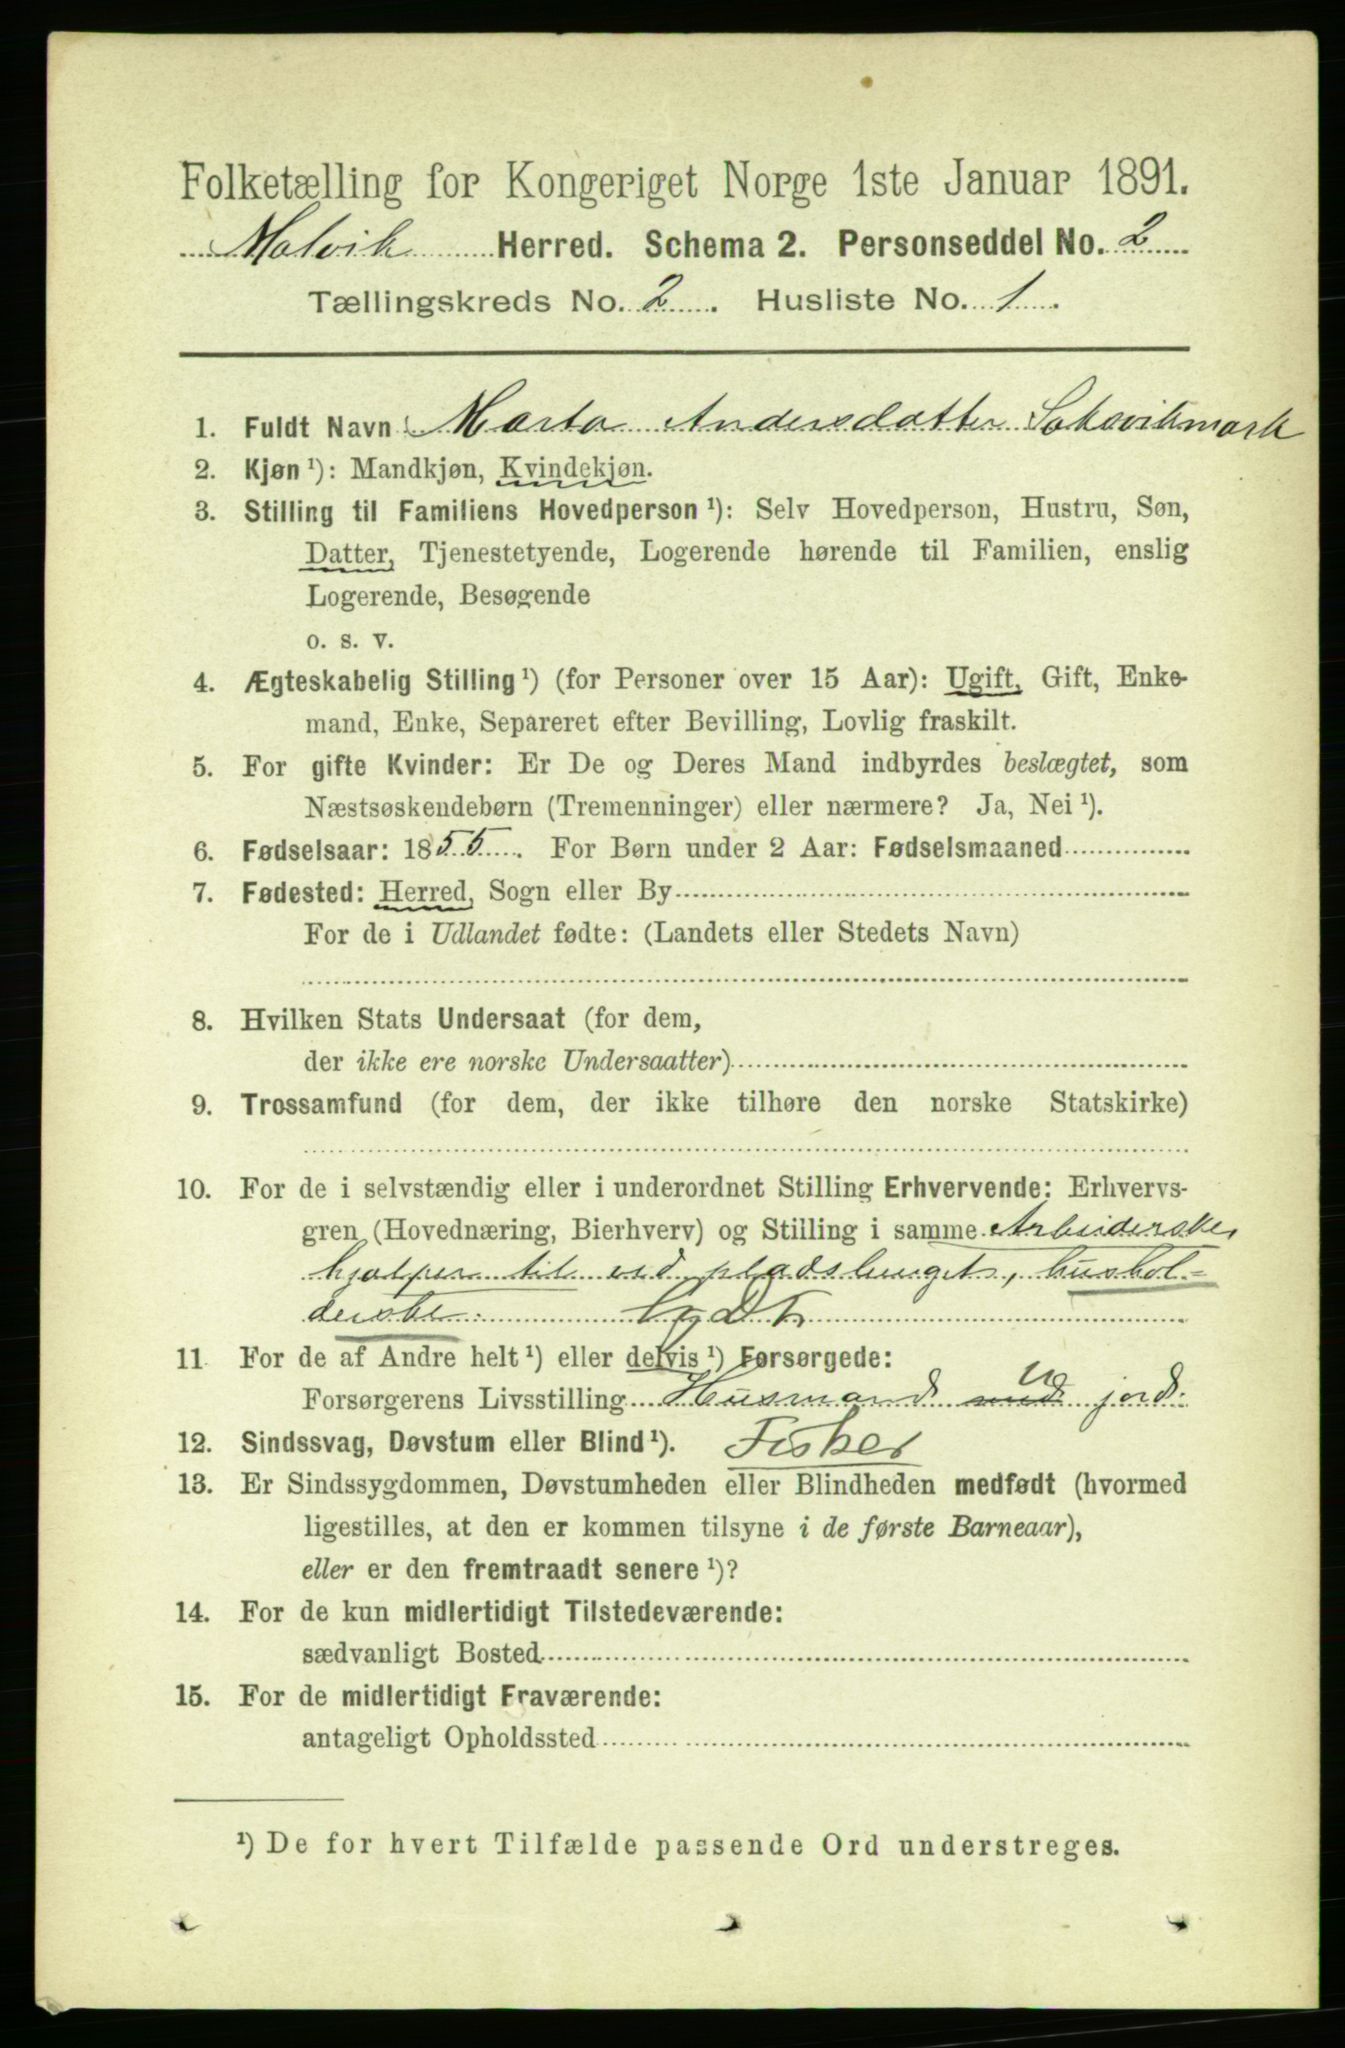 Folketælling for Kongeriget Norge 1ste Januar 1891.
Malvik Herred. Schema 2. Personseddel No. 2
Tællingskreds No. 2. Husliste No. 1.
1. Fuldt Navn Marta Andersdatter Saksvikmark
2. Kjøn ¹): Mandkjøn, Kvindekjøn.
3. Stilling til Familiens Hovedperson ¹): Selv Hovedperson, Hustru, Søn,
Datter, Tjenestetyende, Logerende hørende til Familien, enslig
Logerende, Besøgende
o. s. v.
4. Ægteskabelig Stilling ¹) (for Personer over 15 Aar): Ugift, Gift, Enke-
mand, Enke, Separeret efter Bevilling, Lovlig fraskilt.
5. For gifte Kvinder: Er De og Deres Mand indbyrdes beslægtet, som
Næstsøskendebørn (Tremenninger) eller nærmere? Ja, Nei ¹).
6. Fødselsaar: 1855. For Børn under 2 Aar: Fødselsmaaned
7. Fødested: Herred, Sogn eller By
For de i Udlandet fødte: (Landets eller Stedets Navn)
8. Hvilken Stats Undersaat (for dem,
der ikke ere norske Undersaatter)
9. Trossamfund (for dem, der ikke tilhøre den norske Statskirke)
10. For de i selvstændig eller i underordnet Stilling Erhvervende: Erhvervs-
gren (Hovednæring, Bierhverv) og Stilling i samme Arbeiderske,
hjælper til ved pladsbruget, hushol-
derske.
11 For de af Andre helt ¹) eller delvis ¹) Forsørgede:
Forsørgerens Livsstilling Husmand med u jord.
12. Sindssvag, Døvstum eller Blind ¹). Fisker
13. Er Sindssygdommen, Døvstumheden eller Blindheden medfødt (hvormed
ligestilles, at den er kommen tilsyne i de første Barneaar),
eller er den fremtraadt senere ¹)?
14. For de kun midlertidigt Tilstedeværende:
sædvanligt Bosted
15. For de midlertidigt Fraværende:
antageligt Opholdssted
¹) De for hvert Tilfælde passende Ord understreges.